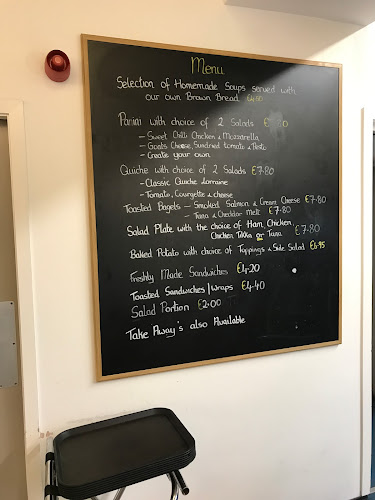 Menu
Selection of Homemade Soups served with
our own Brown Bread €4.00
Panini with choice of 2 Salads €7.80
- Sweet Chilli Chicken & Mozzarella
- Goats Cheese, Sundried tomato & Pesto
- Create your own
Quiche with choice of 2 Salads €7.80
- Classic Quiche Lorraine
- Tomato, Courgette & cheese
Toasted Bagels - Smoked Salmon & Cream Cheese €7.80
- Tuna & Cheddar Melt €7.80
Salad Plate with the choice of Ham, Chicken,
Chicken Tikka or Tuna €7.80
Baked Potato with choice of Toppings & Side Salad €6.95
Freshly Made Sandwiches €4.20
Toasted Sandwiches/Wraps €4.40
Salad Portion €2.00
Take Away's also Available